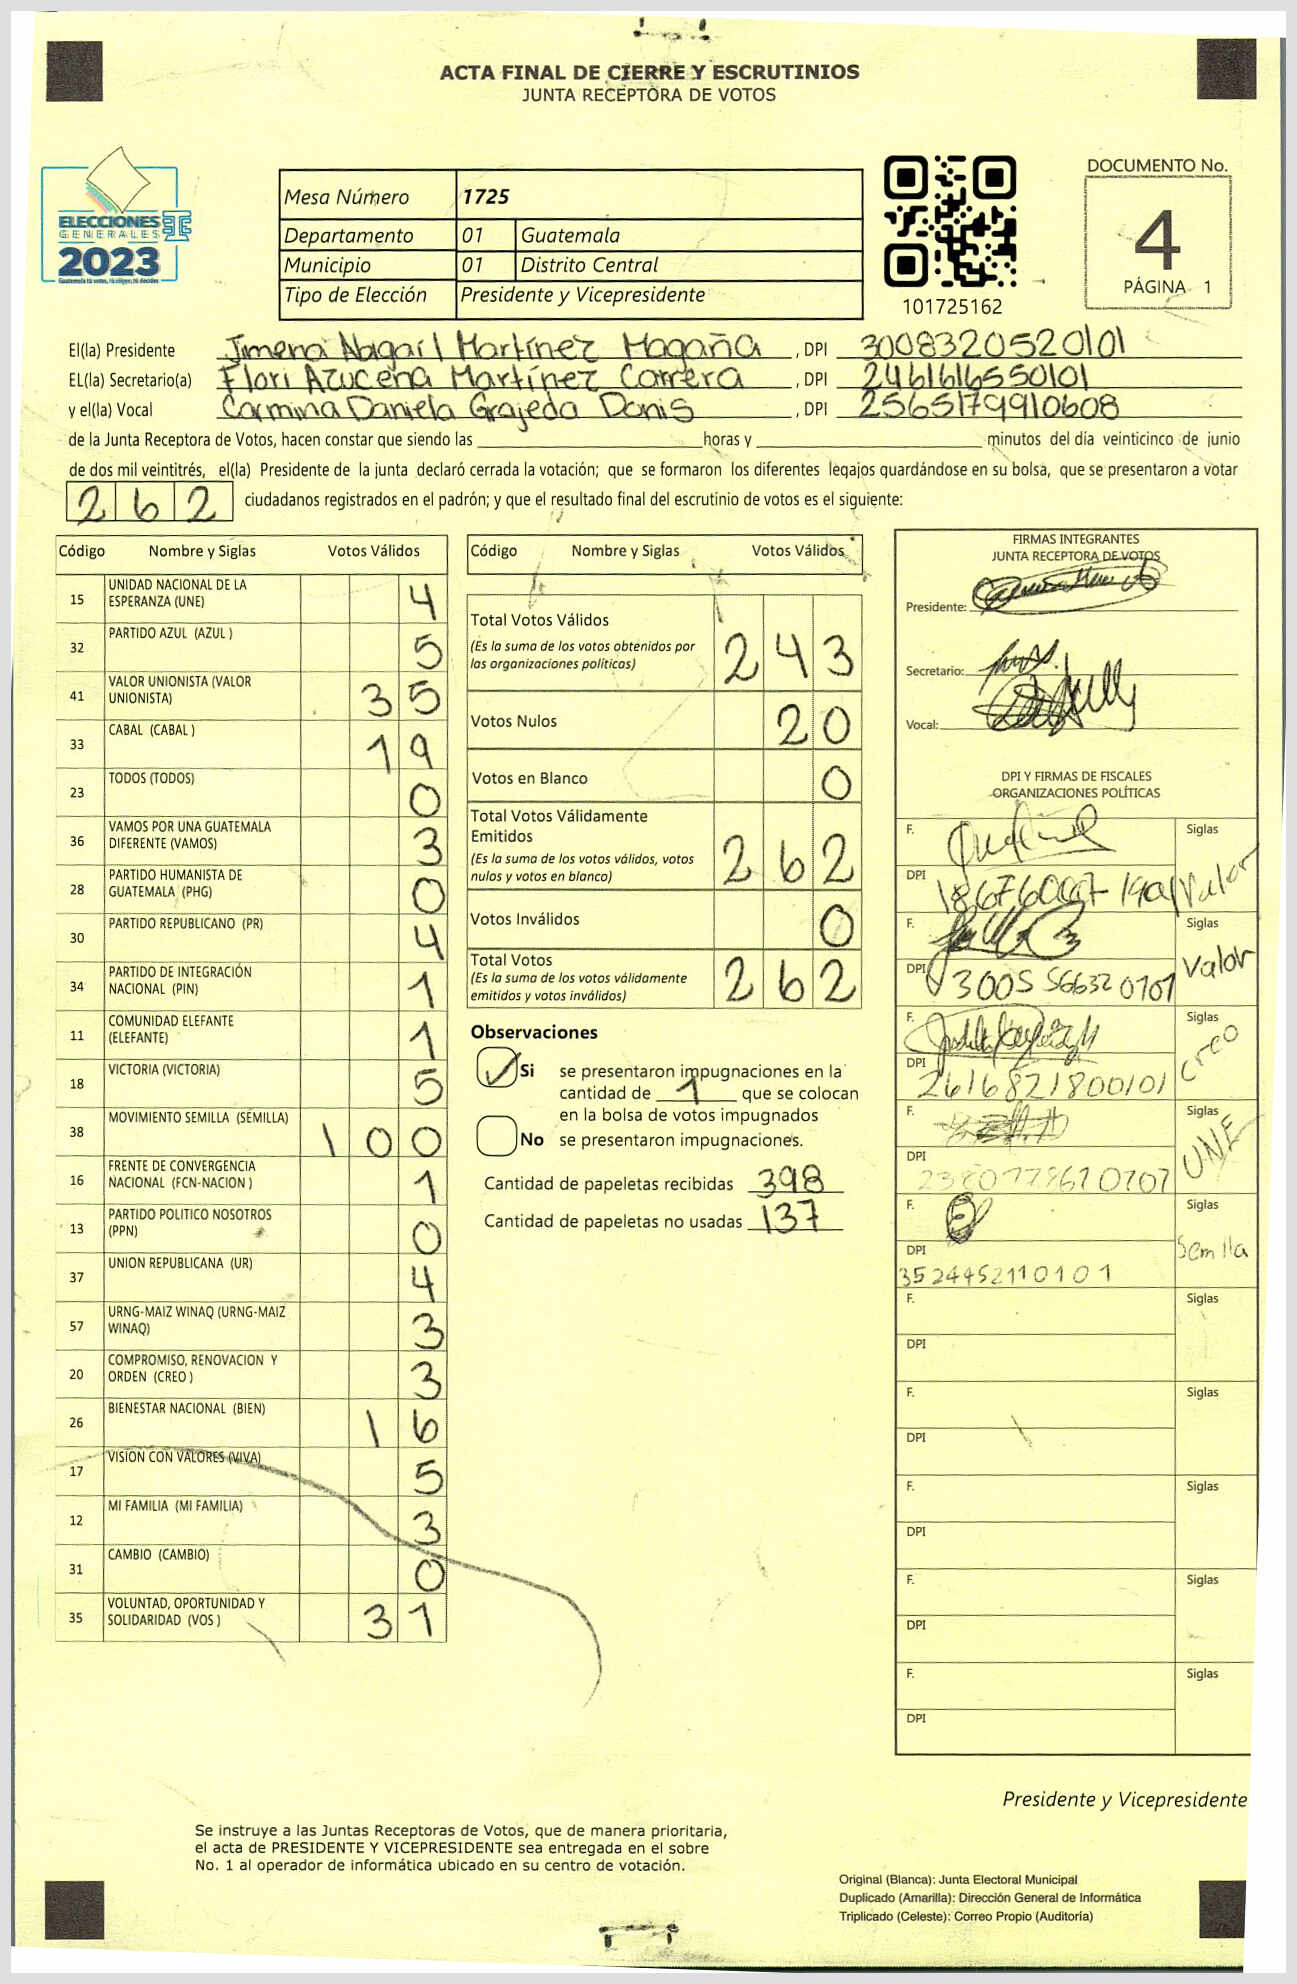 ACTA FINAL DE CIERRE Y ESCRUTINIOS
JUNTA RECEPTORA DE VOTOS
ELECCIONES
GENERALES
2023
Mesa Número 1725
Departamento 01 Guatemala
Municipio 01 Distrito Central
Tipo de Elección Presidente y Vicepresidente
101725162
DOCUMENTO No.
4
PÁGINA 1
El(la) Presidente Jimena Abigail Martínez Magaña, DPI 3008320520101
EL(la) Secretario(a) Flori Azucena Martínez Carrera, DPI 2461616550101
y el(la) Vocal Carmina Daniela Grajeda Donis, DPI 2565179910608
de la Junta Receptora de Votos, hacen constar que siendo las horas y minutos del día veinticinco de junio
de dos mil veintitrés, el(la) Presidente de la junta declaró cerrada la votación; que se formaron los diferentes legajos guardándose en su bolsa, que se presentaron a votar
262 ciudadanos registrados en el padrón; y que el resultado final del escrutinio de votos es el siguiente:
Código Nombre y Siglas Votos Válidos
15 UNIDAD NACIONAL DE LA ESPERANZA (UNE) 4
32 PARTIDO AZUL (AZUL ) 5
41 VALOR UNIONISTA (VALOR UNIONISTA) 35
33 CABAL (CABAL ) 19
23 TODOS (TODOS) 0
36 VAMOS POR UNA GUATEMALA DIFERENTE (VAMOS) 3
28 PARTIDO HUMANISTA DE GUATEMALA (PHG) 0
30 PARTIDO REPUBLICANO (PR) 4
34 PARTIDO DE INTEGRACIÓN NACIONAL (PIN) 1
11 COMUNIDAD ELEFANTE (ELEFANTE) 1
18 VICTORIA (VICTORIA) 5
38 MOVIMIENTO SEMILLA (SEMILLA) 100
16 FRENTE DE CONVERGENCIA NACIONAL (FCN-NACION ) 1
13 PARTIDO POLITICO NOSOTROS (PPN) 0
37 UNION REPUBLICANA (UR) 4
57 URNG-MAIZ WINAQ (URNG-MAIZ WINAQ) 3
20 COMPROMISO, RENOVACION Y ORDEN (CREO ) 3
26 BIENESTAR NACIONAL (BIEN) 16
17 VISION CON VALORES (VIVA) 5
12 MI FAMILIA (MI FAMILIA) 3
31 CAMBIO (CAMBIO) 0
35 VOLUNTAD, OPORTUNIDAD Y SOLIDARIDAD (VOS ) 31
Código Nombre y Siglas Votos Válidos
Total Votos Válidos 243
(Es la suma de los votos obtenidos por
las organizaciones políticas)
Votos Nulos 20
Votos en Blanco 0
Total Votos Válidamente
Emitidos 262
(Es la suma de los votos válidos, votos
nulos y votos en blanco)
Votos Inválidos 0
Total Votos 262
(Es la suma de los votos válidamente
emitidos y votos inválidos)
Observaciones
Si se presentaron impugnaciones en la
cantidad de 1 que se colocan
en la bolsa de votos impugnados
No se presentaron impugnaciones.
Cantidad de papeletas recibidas 398
Cantidad de papeletas no usadas 137
FIRMAS INTEGRANTES
JUNTA RECEPTORA DE VOTOS
Presidente:
Secretario:
Vocal:
DPI Y FIRMAS DE FISCALES
ORGANIZACIONES POLÍTICAS
F. Siglas
DPI Valor
F. Siglas
DPI 3005 56632 0101 Valor
F. Siglas
DPI 2616821800101 Creo
F. Siglas
DPI UNE
F. Siglas
DPI 3524452110101 Semilla
F. Siglas
DPI
F. Siglas
DPI
F. Siglas
DPI
F. Siglas
DPI
F. Siglas
DPI
Presidente y Vicepresidente
Se instruye a las Juntas Receptoras de Votos, que de manera prioritaria,
el acta de PRESIDENTE Y VICEPRESIDENTE sea entregada en el sobre
No. 1 al operador de informática ubicado en su centro de votación.
Original (Blanca): Junta Electoral Municipal
Duplicado (Amarilla): Dirección General de Informática
Triplicado (Celeste): Correo Propio (Auditoría)